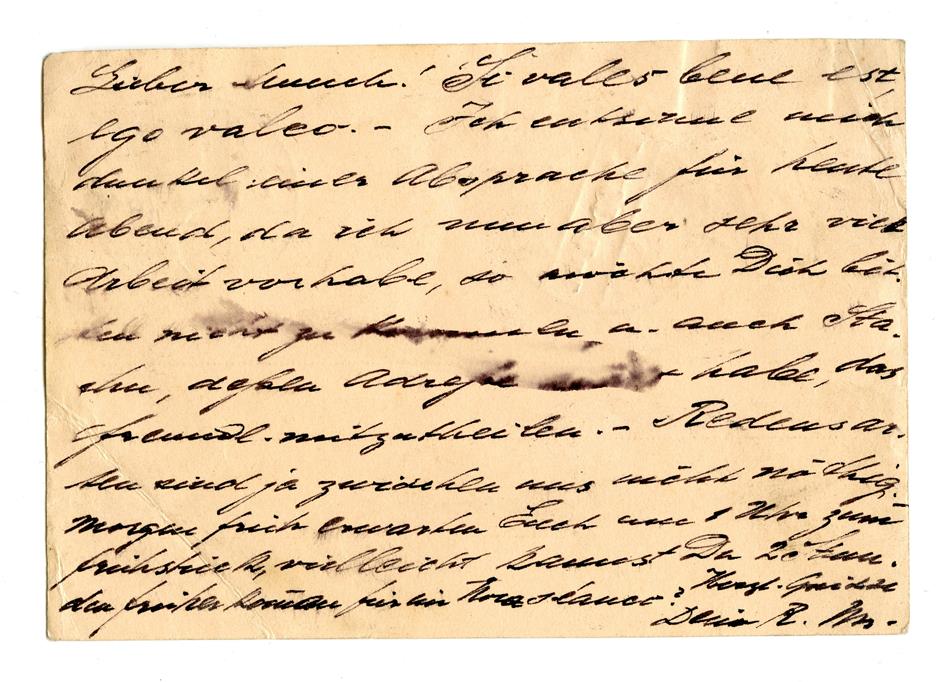 Lieber Munch! Si vales bene est,
ego valeo. – Ich entsinne mich
dunkel einer Absprache für heute
Abend, da ich nun aber sehr viel
Arbeit vorhabe, so möchte Dich bit-
ten nicht zu kommen, u. auch
deßen Adreße habe, das
freundl. mitzutheilen. – Redensar-
ten sind ja zwischen uns nicht nöthig.
Morgen früh erwarten Euch um 1 Uhr zum
frühstück, vielleicht kannst Du 2 Stun-
den früher kommen für ein ? Herzl. Grüße
Dein R.